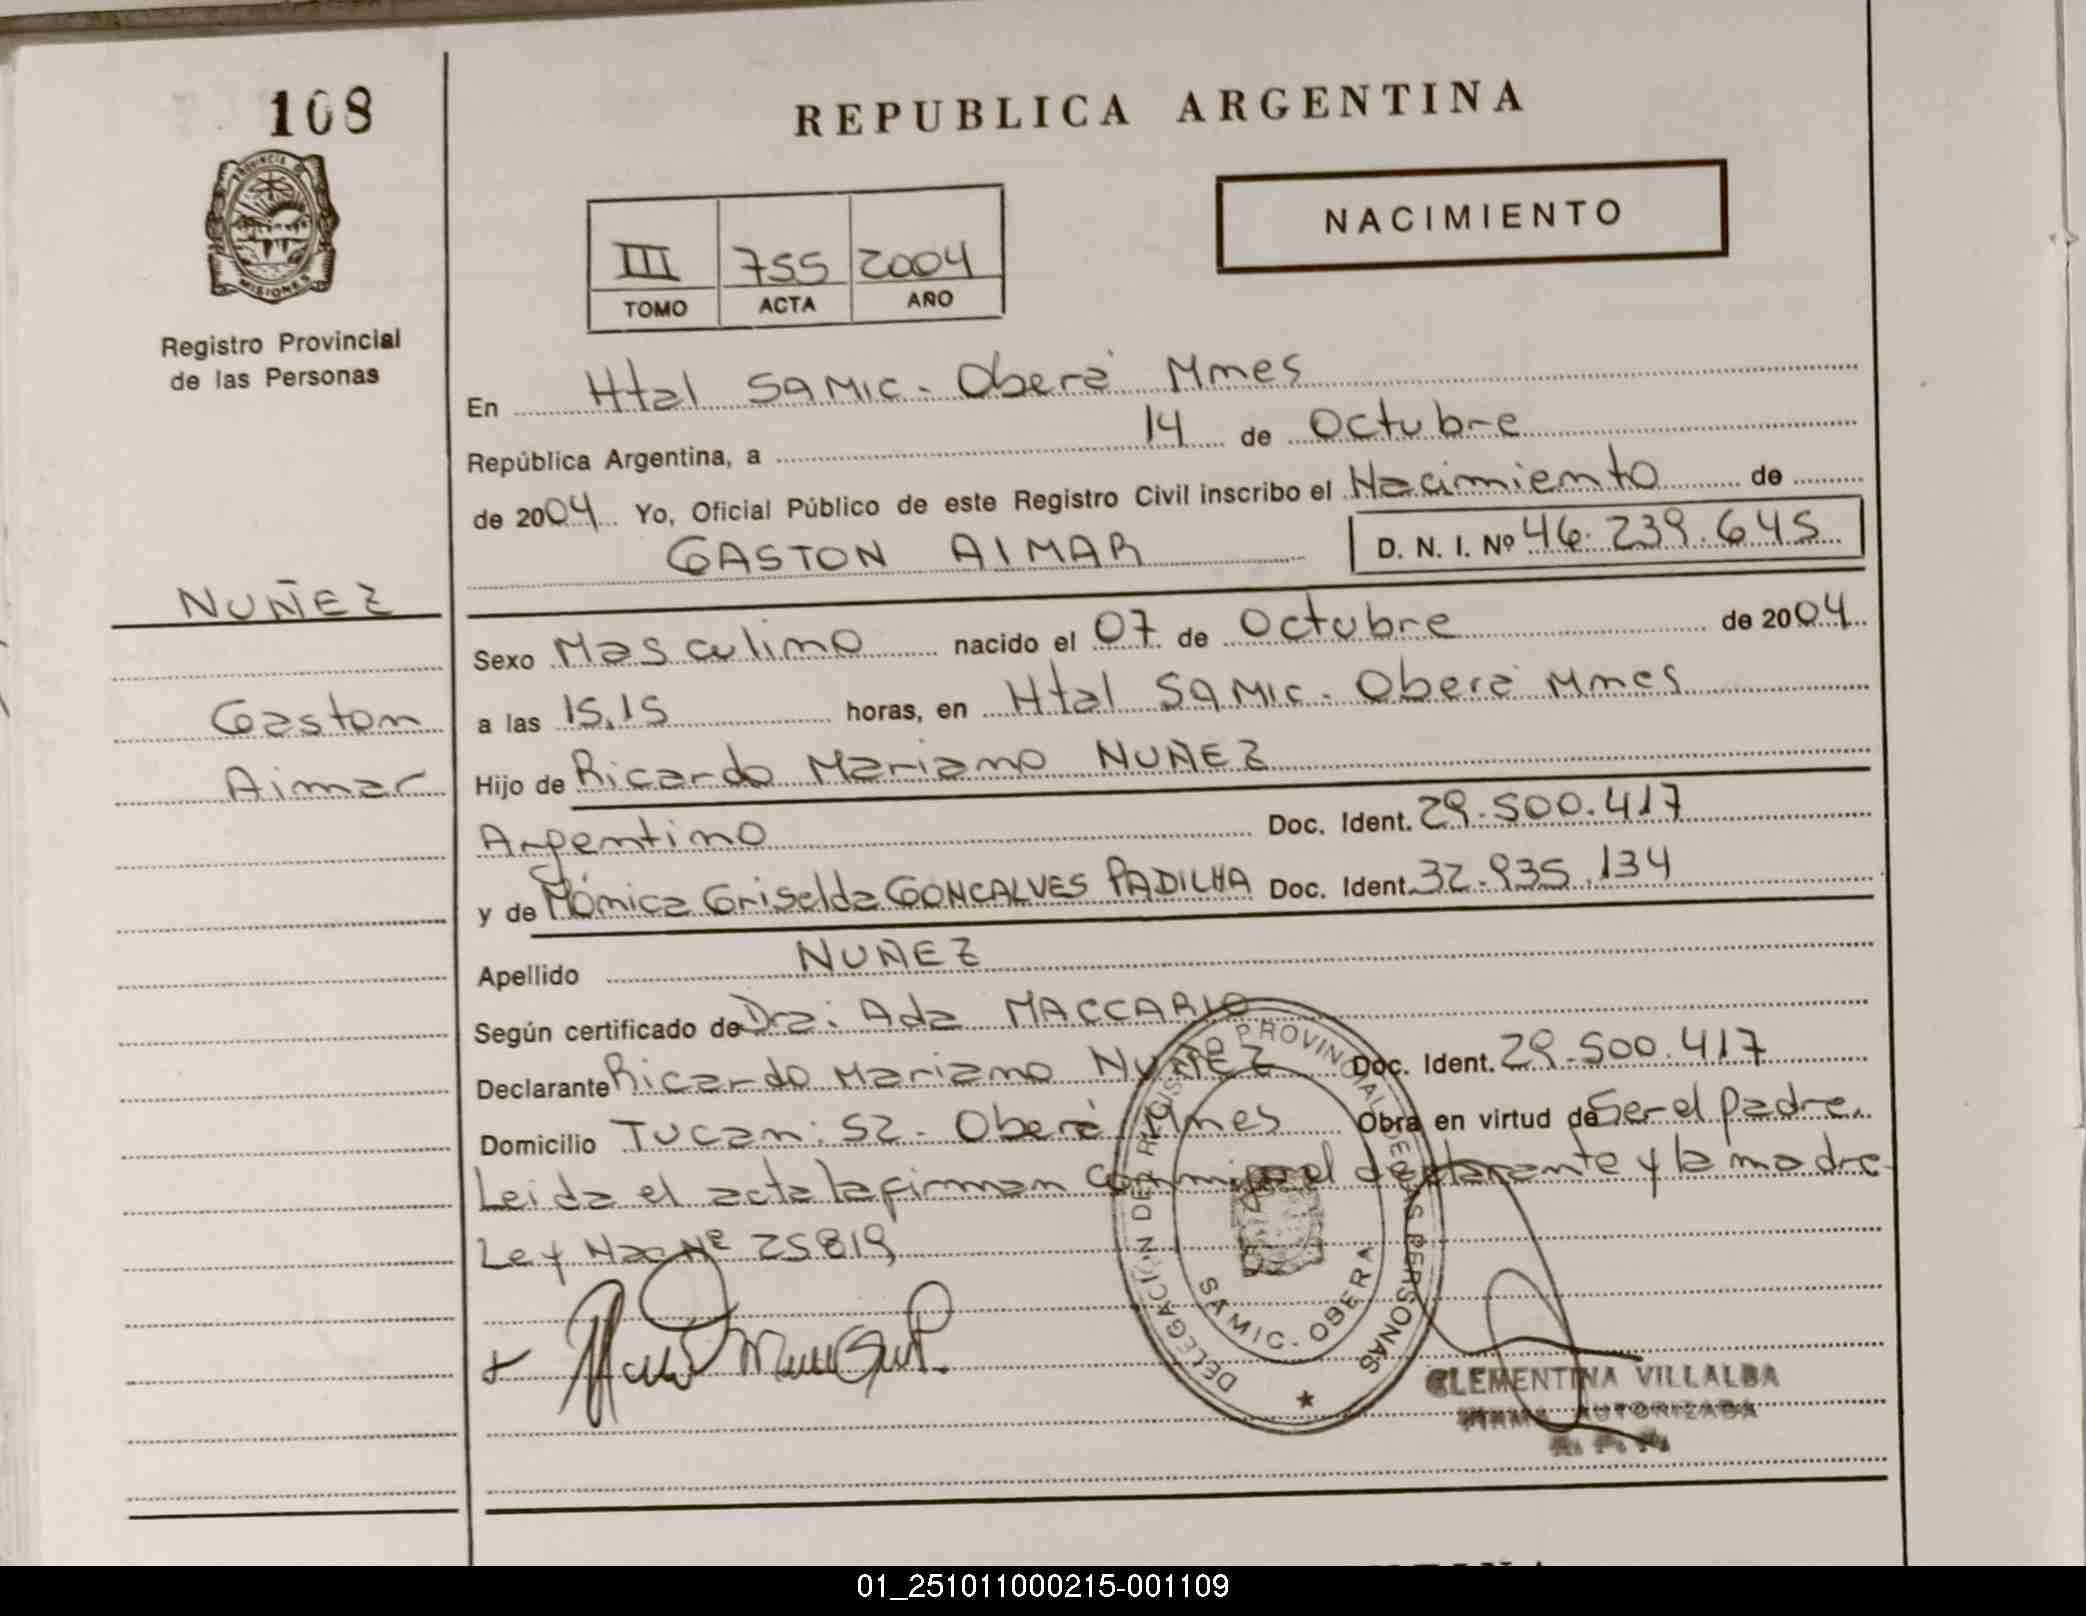 108
REPUBLICA ARGENTINA
PROVINCIA DE
MISIONES
NACIMIENTO
III 755 2004
TOMO ACTA AÑO
Registro Provincial
de las Personas
En Htal SAMIC - Oberá Mnes
República Argentina, a 14 de Octubre
de 2004 Yo, Oficial Público de este Registro Civil inscribo el Nacimiento de
GASTON AIMAR D. N. I. Nº 46.239.645
NUÑEZ
Gaston
Aimar
Sexo Masculino nacido el 07 de Octubre de 2004
a las 15.15 horas, en Htal SAMIC - Oberá Mnes
Hijo de Ricardo Mariano NUÑEZ
Argentino Doc. Ident. 29.500.417
y de Mónica Griselda GONCALVES PADILHA Doc. Ident. 32.935.134
Apellido NUÑEZ
Según certificado de Dra: Ada MACCARIO
Declarante Ricardo Mariano NUÑEZ Doc. Ident. 29.500.417
Domicilio Tucan: 52 - Oberá Mnes Obra en virtud de Ser el padre.
Leida el acta la firman conmigo el declarante y la madre
Ley Nac Nº 25819
DELEGACION DEL REGISTRO PROVINCIAL DE LAS PERSONAS
SAMIC - OBERA
CLEMENTINA VILLALBA
FIRMA AUTORIZADA
01_251011000215-001109